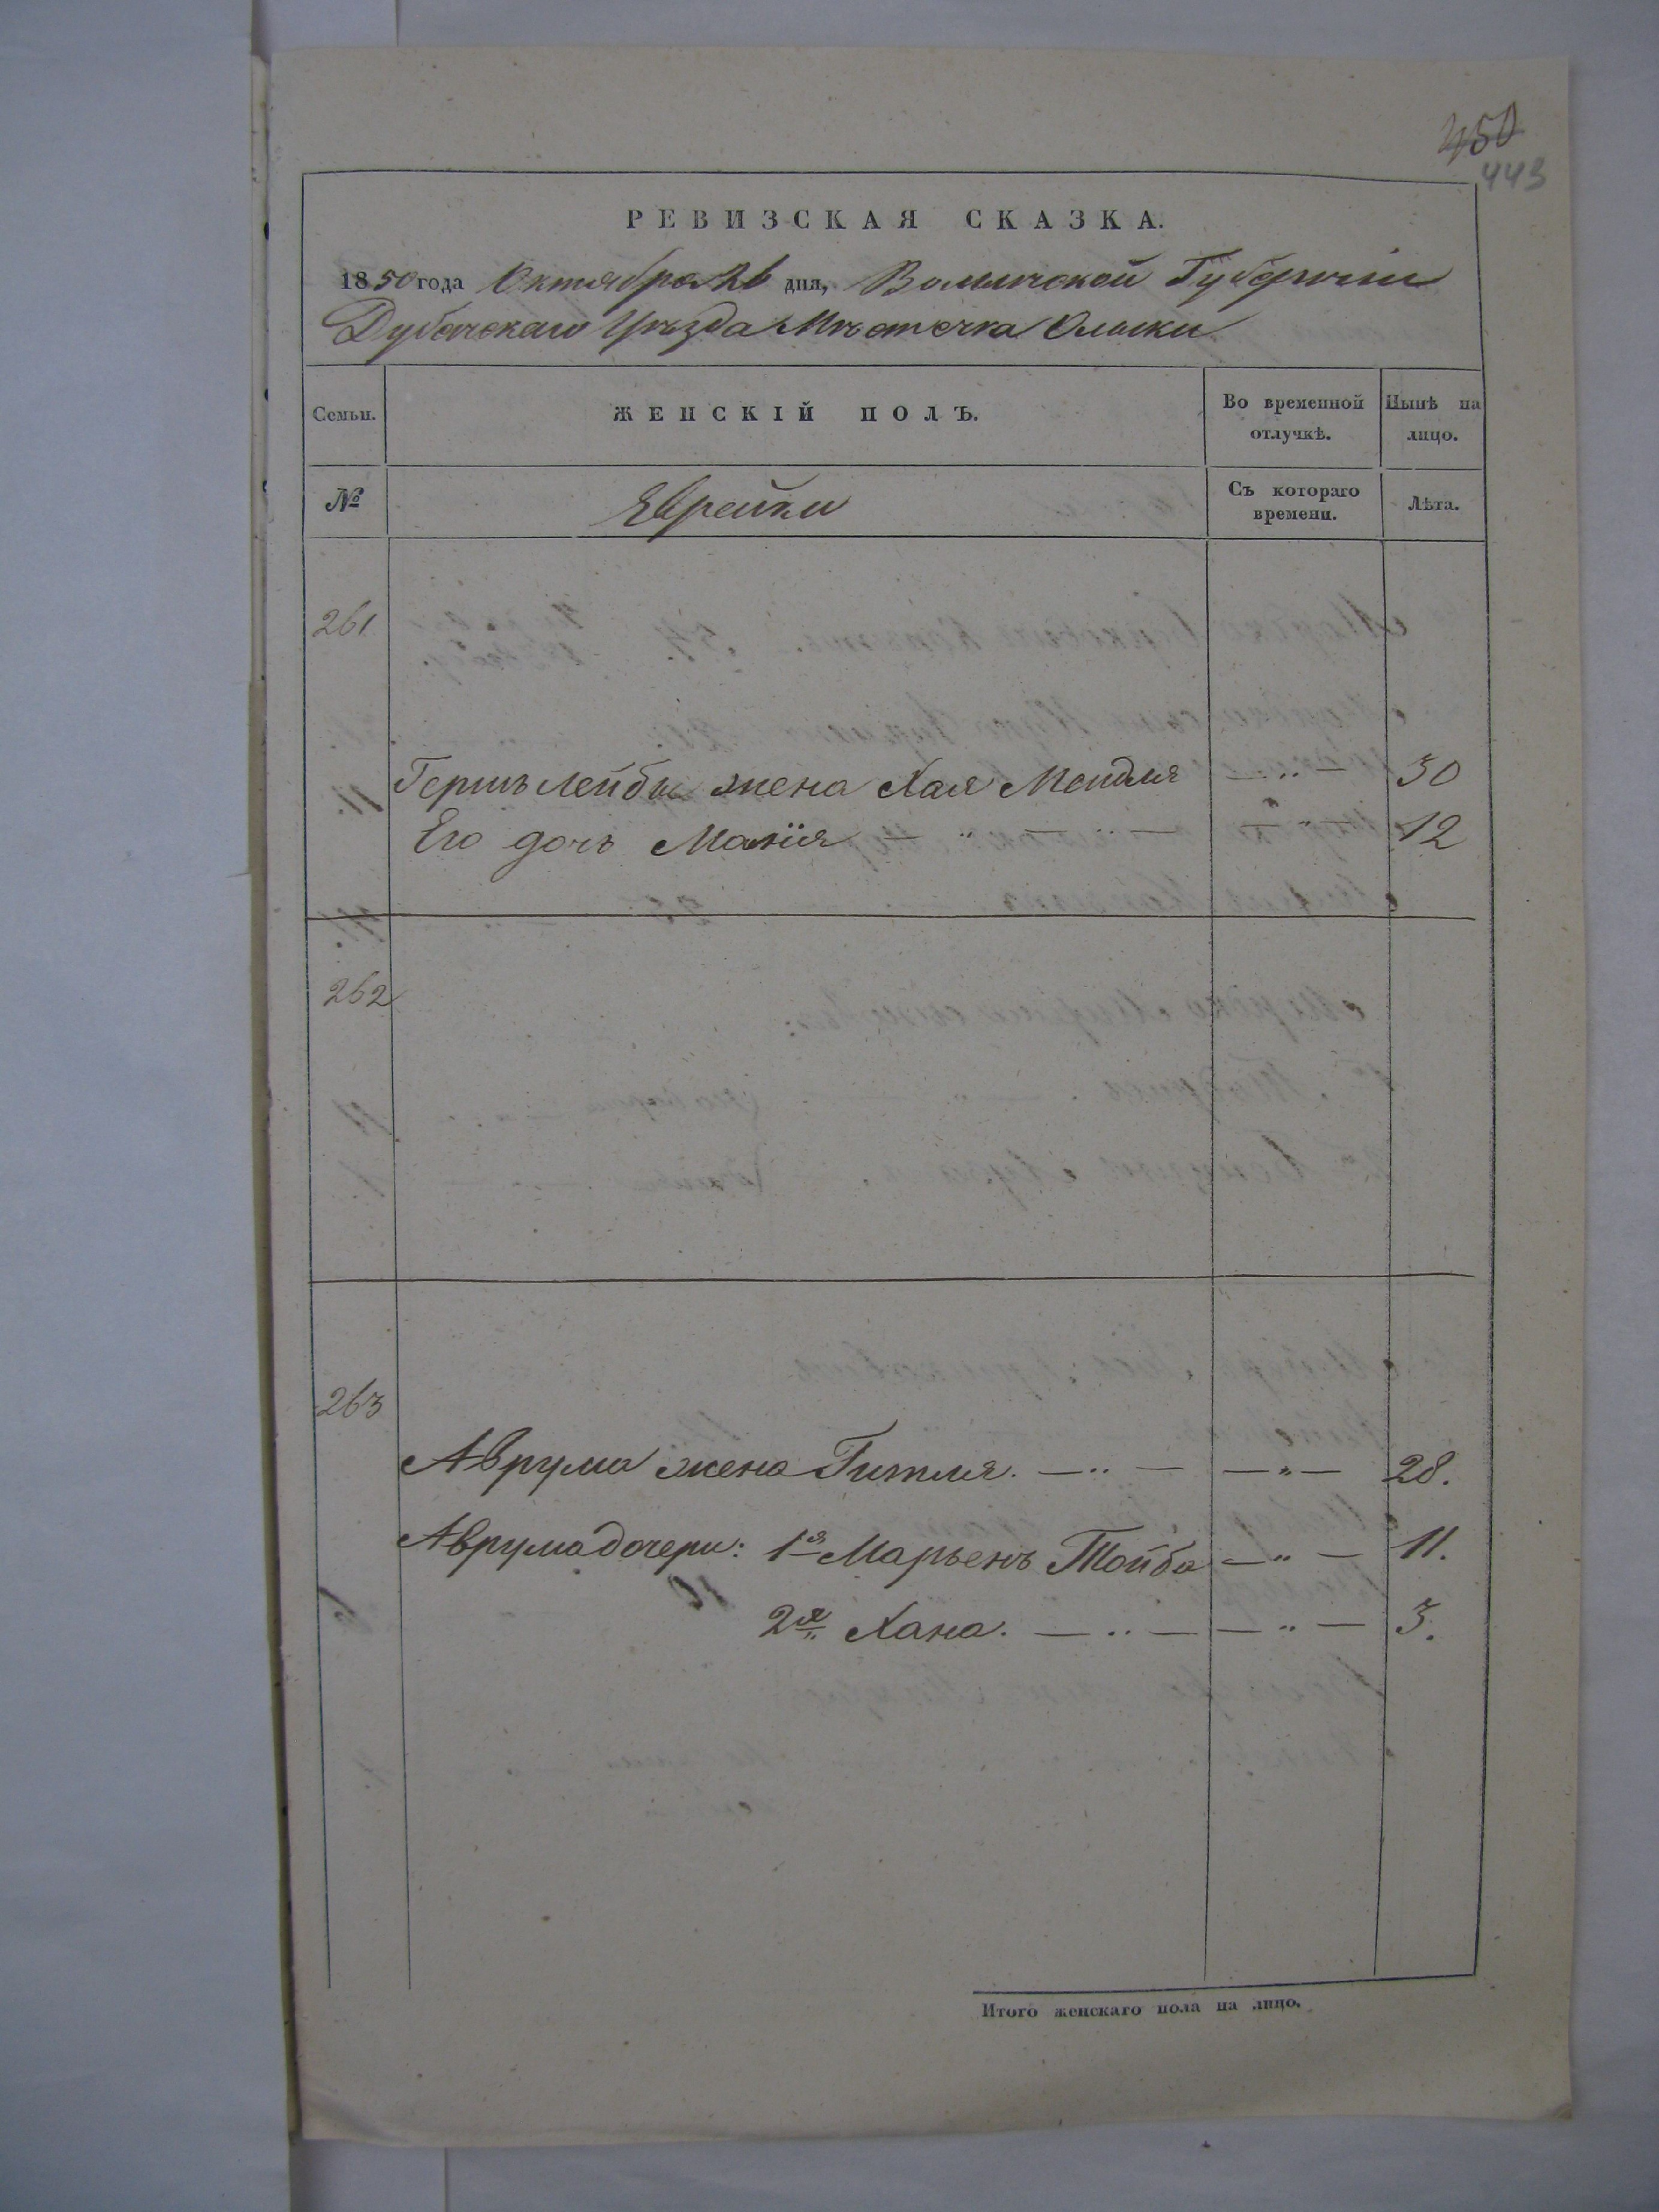 450
443
РЕВИЗСКАЯ СКАЗКА.
1850 года Октября 26 дня, Волынской Губерніи
Дубенскаго Уѣзда Мѣстечка Олыки
Семьи. ЖЕНСКІЙ ПОЛЪ. Во временной отлучкѣ. Нынѣ на лицо.
№ Еврейки Съ котораго времени. Лѣта.
261
Гершъ Лейбы жена Хая Мендля — „ — 30
Его дочь Малія — „ — „ — — „ — 12
262
263
Аврума жена Гитля. — „ — — „ — 28.
Аврума дочери: 1я Марьемъ Тойба — „ — 11.
2я Хана. — „ — — „ — 3.
Итого женскаго пола на лицо.